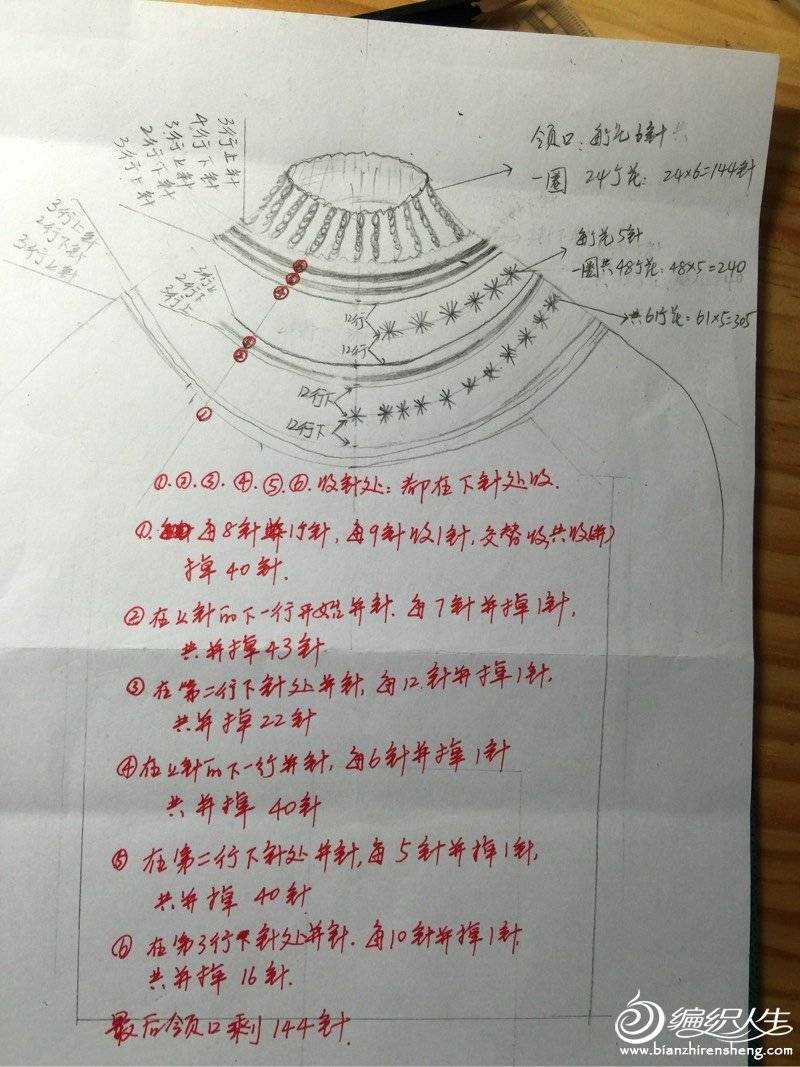 3行上针
4行下针
3行上针
2行下针
3行上针
领口：每花6针
一圈 24个花：24×6=144针
3行上针
2行下针
3行上针
每花5针
一圈共48个花：48×5=240
3行上
2行下
3行上
共61个花=61×5=305
⑥
⑤
④
12行
12行
③
②
12行下
12行下
①
①.②.③.④.⑤.⑥.收针处：都在下针处收.
①. 每8针并1针，每9针收1针，交替收，共收(并)
掉40针.
②在上针的下一行开始并针.每7针并掉1针，
共并掉43针
③在第二行下针处并针，每12针并掉1针，
共并掉22针
④在上针的下一行并针，每6针并掉1针
共并掉40针
⑤在第二行下针处并针，每5针并掉1针，
共并掉40针
⑥在第3行下针处并针.每10针并掉1针
共并掉16针.
最后领口剩144针.
编织人生
www.bianzhirensheng.com